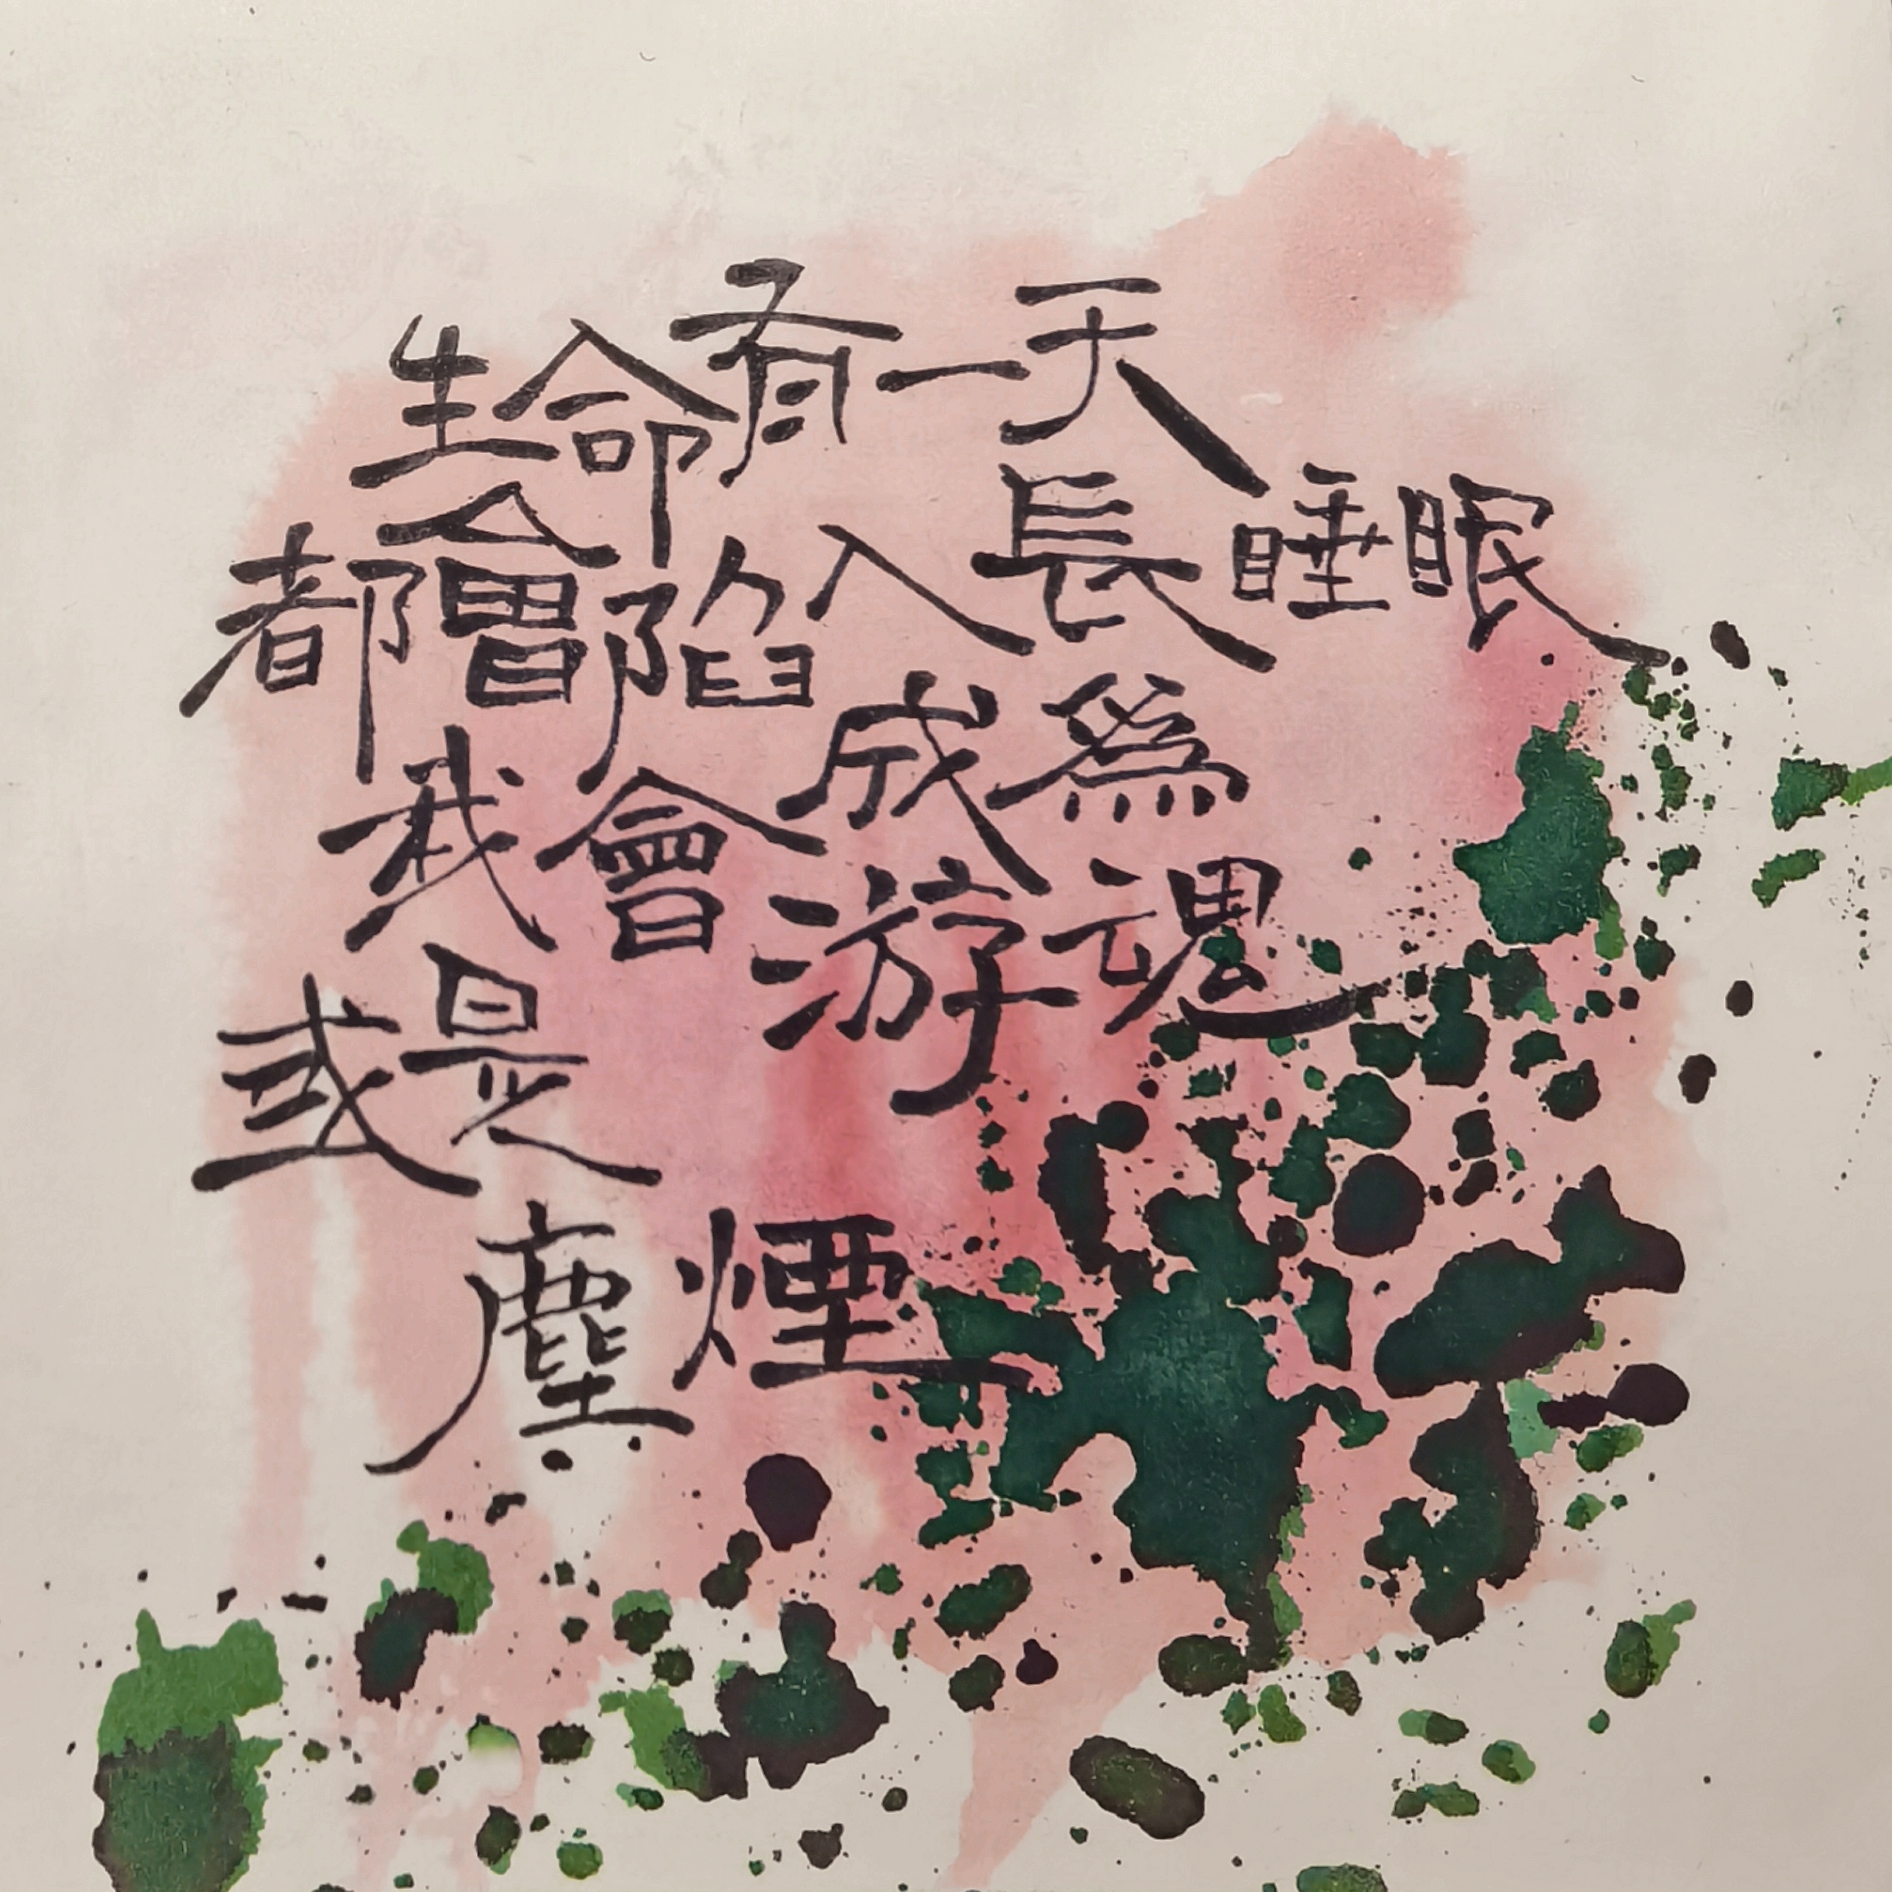 生命有一天
都會陷入長睡眠
我會成爲
游魂
或是
塵煙